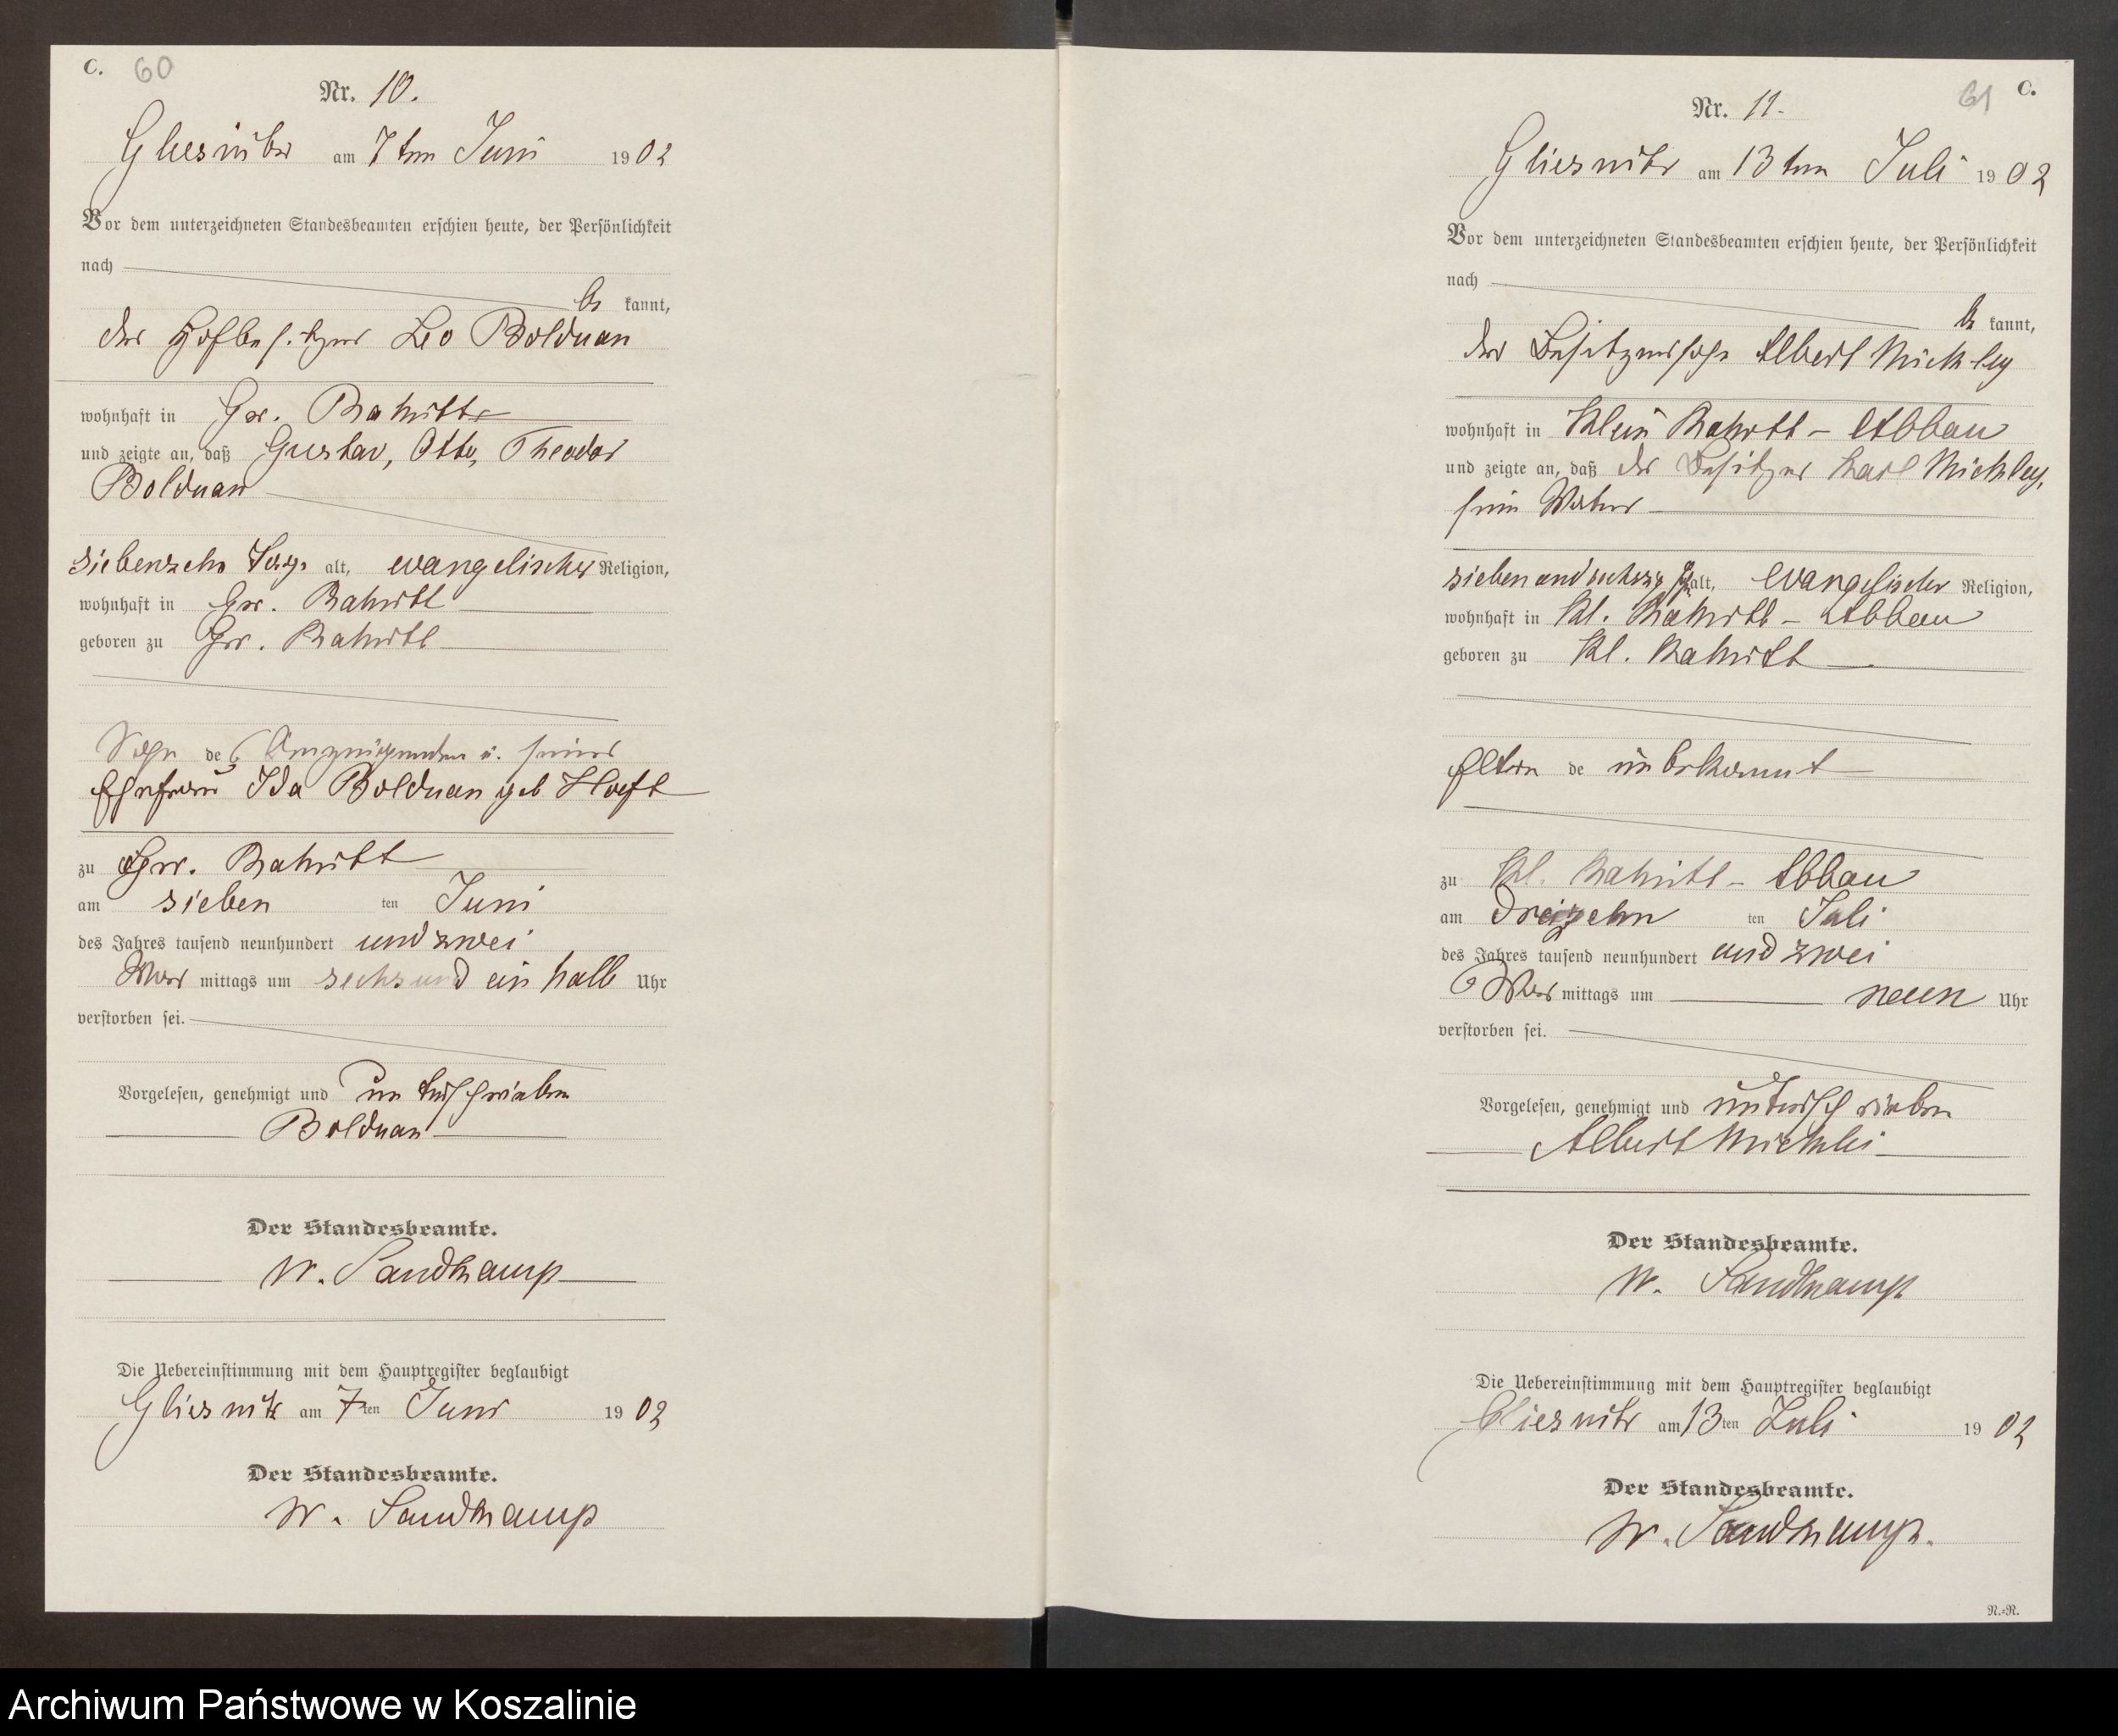 C. 60
Nr. 10.
Gliesnitz am 7ten Juni 1902
Vor dem unterzeichneten Standesbeamten erschien heute, der Persönlichkeit
nach
be kannt,
der Hofbesitzer Leo Bolduan
wohnhaft in Gr. Rakitt
und zeigte an, daß Gustav, Otto, Theodor
Bolduan
siebenzehn Tage alt, evangelischer Religion,
wohnhaft in Gr. Rakitt
geboren zu Gr. Rakitt
Sohn des Anzeigenden u. seiner
Ehefrau Ida Bolduan geb Hoeft
zu Gr. Rakitt
am sieben ten Juni
des Jahres tausend neunhundert und zwei
Vor mittags um sechs und ein halb Uhr
verstorben sei.
Vorgelesen, genehmigt und unterschrieben
Bolduan
Der Standesbeamte.
W. Sandkamp
Die Uebereinstimmung mit dem Hauptregister beglaubigt
Gliesnitz am 7ten Juni 1902
Der Standesbeamte.
W. Sandkamp
61 C.
Nr. 11.
Gliesnitz am 13ten Juli 1902
Vor dem unterzeichneten Standesbeamten erschien heute, der Persönlichkeit
nach
be kannt,
der Besitzersohn Albert Mickley
wohnhaft in Klein Rakitt - Abbau
und zeigte an, daß der Besitzer Karl Mickley,
sein Vater
siebenundachzig J. alt, evangelischer Religion,
wohnhaft in Kl. Rakitt - Abbau
geboren zu Kl. Rakitt
Eltern de unbekannt
zu Kl. Rakitt - Abbau
am dreizehn ten Juli
des Jahres tausend neunhundert und zwei
Vor mittags um neun Uhr
verstorben sei.
Vorgelesen, genehmigt und unterschrieben
Albert Micklei
Der Standesbeamte.
W. Sandkamp
Die Uebereinstimmung mit dem Hauptregister beglaubigt
Gliesnitz am 13ten Juli 1902
Der Standesbeamte.
W. Sandkamp.
N.=R.
Archiwum Państwowe w Koszalinie